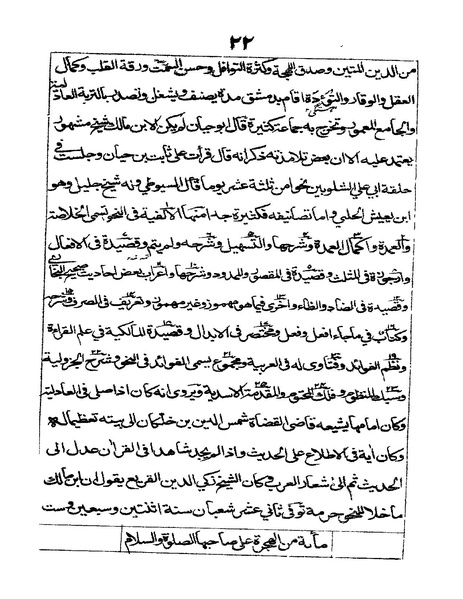 ٢٢
من الدين المتين وصدق اللهجة وكثرة النوافل وحسن السمت ورقة القلب وكمال
العقل والوقار والتؤدة اقام بدمشق مدة يصنف ويشتغل وتصدر بالتربة العادلية
والجامع المعمور وتخرج به جماعة كثيرة قال ابو حيان لم يكن لابن مالك شيخ مشهور
يعتمد عليه الا ان بعض تلامذته ذكر انه قال قرأت على ثابت بن حيان وجلست في
حلقة ابي علي الشلوبين نحوا من ثلثة عشر يوما قال السيوطي وله شيخ جليل وهو
ابن يعيش الحلبي واما تصانيفه فكثيرة جدا منها الألفية في النحو تسمى الخلاصة
والعمدة واكمال العمدة وشرحها والتسهيل وشرحه ولم يتم وقصيدة في الافعال
وارجوزة في المثلث وقصيدة في المقصور والممدود وشرحها واعراب بعض احاديث صحيح البخاري
وقصيدة في الضاد والظاء واخرى فيما هو مهموز وغير مهموز وتعريف في الصرف وشرحه
وكتاب في ما جاء افعل وفعل ومختصر في الابدال وقصيدة المالكية في علم القراءة
ونظم الفوائد وفتاوى له في العربية ومجموع يسمى الفوائد في النحو وشرح الجزولية
وسبك المنظوم وفك المختوم والمقدمة الاسدية ويروى انه كان اذا صلى في العادلية
وكان امامها يشيعه قاضى القضاة شمس الدين بن خلكان الى بيته تعظيما له
وكان آية في الاطلاع على الحديث واذا لم يجد شاهدا في القرآن عدل الى
الحديث ثم الى شعار العرب وكان الشيخ زكي الدين القريع يقول ان ابن مالك
ما خلا للنحو حرمة توفى ثاني عشر شعبان سنة اثنتين وسبعين وست
مأة من الهجرة على صاحبها الصلوة والسلام